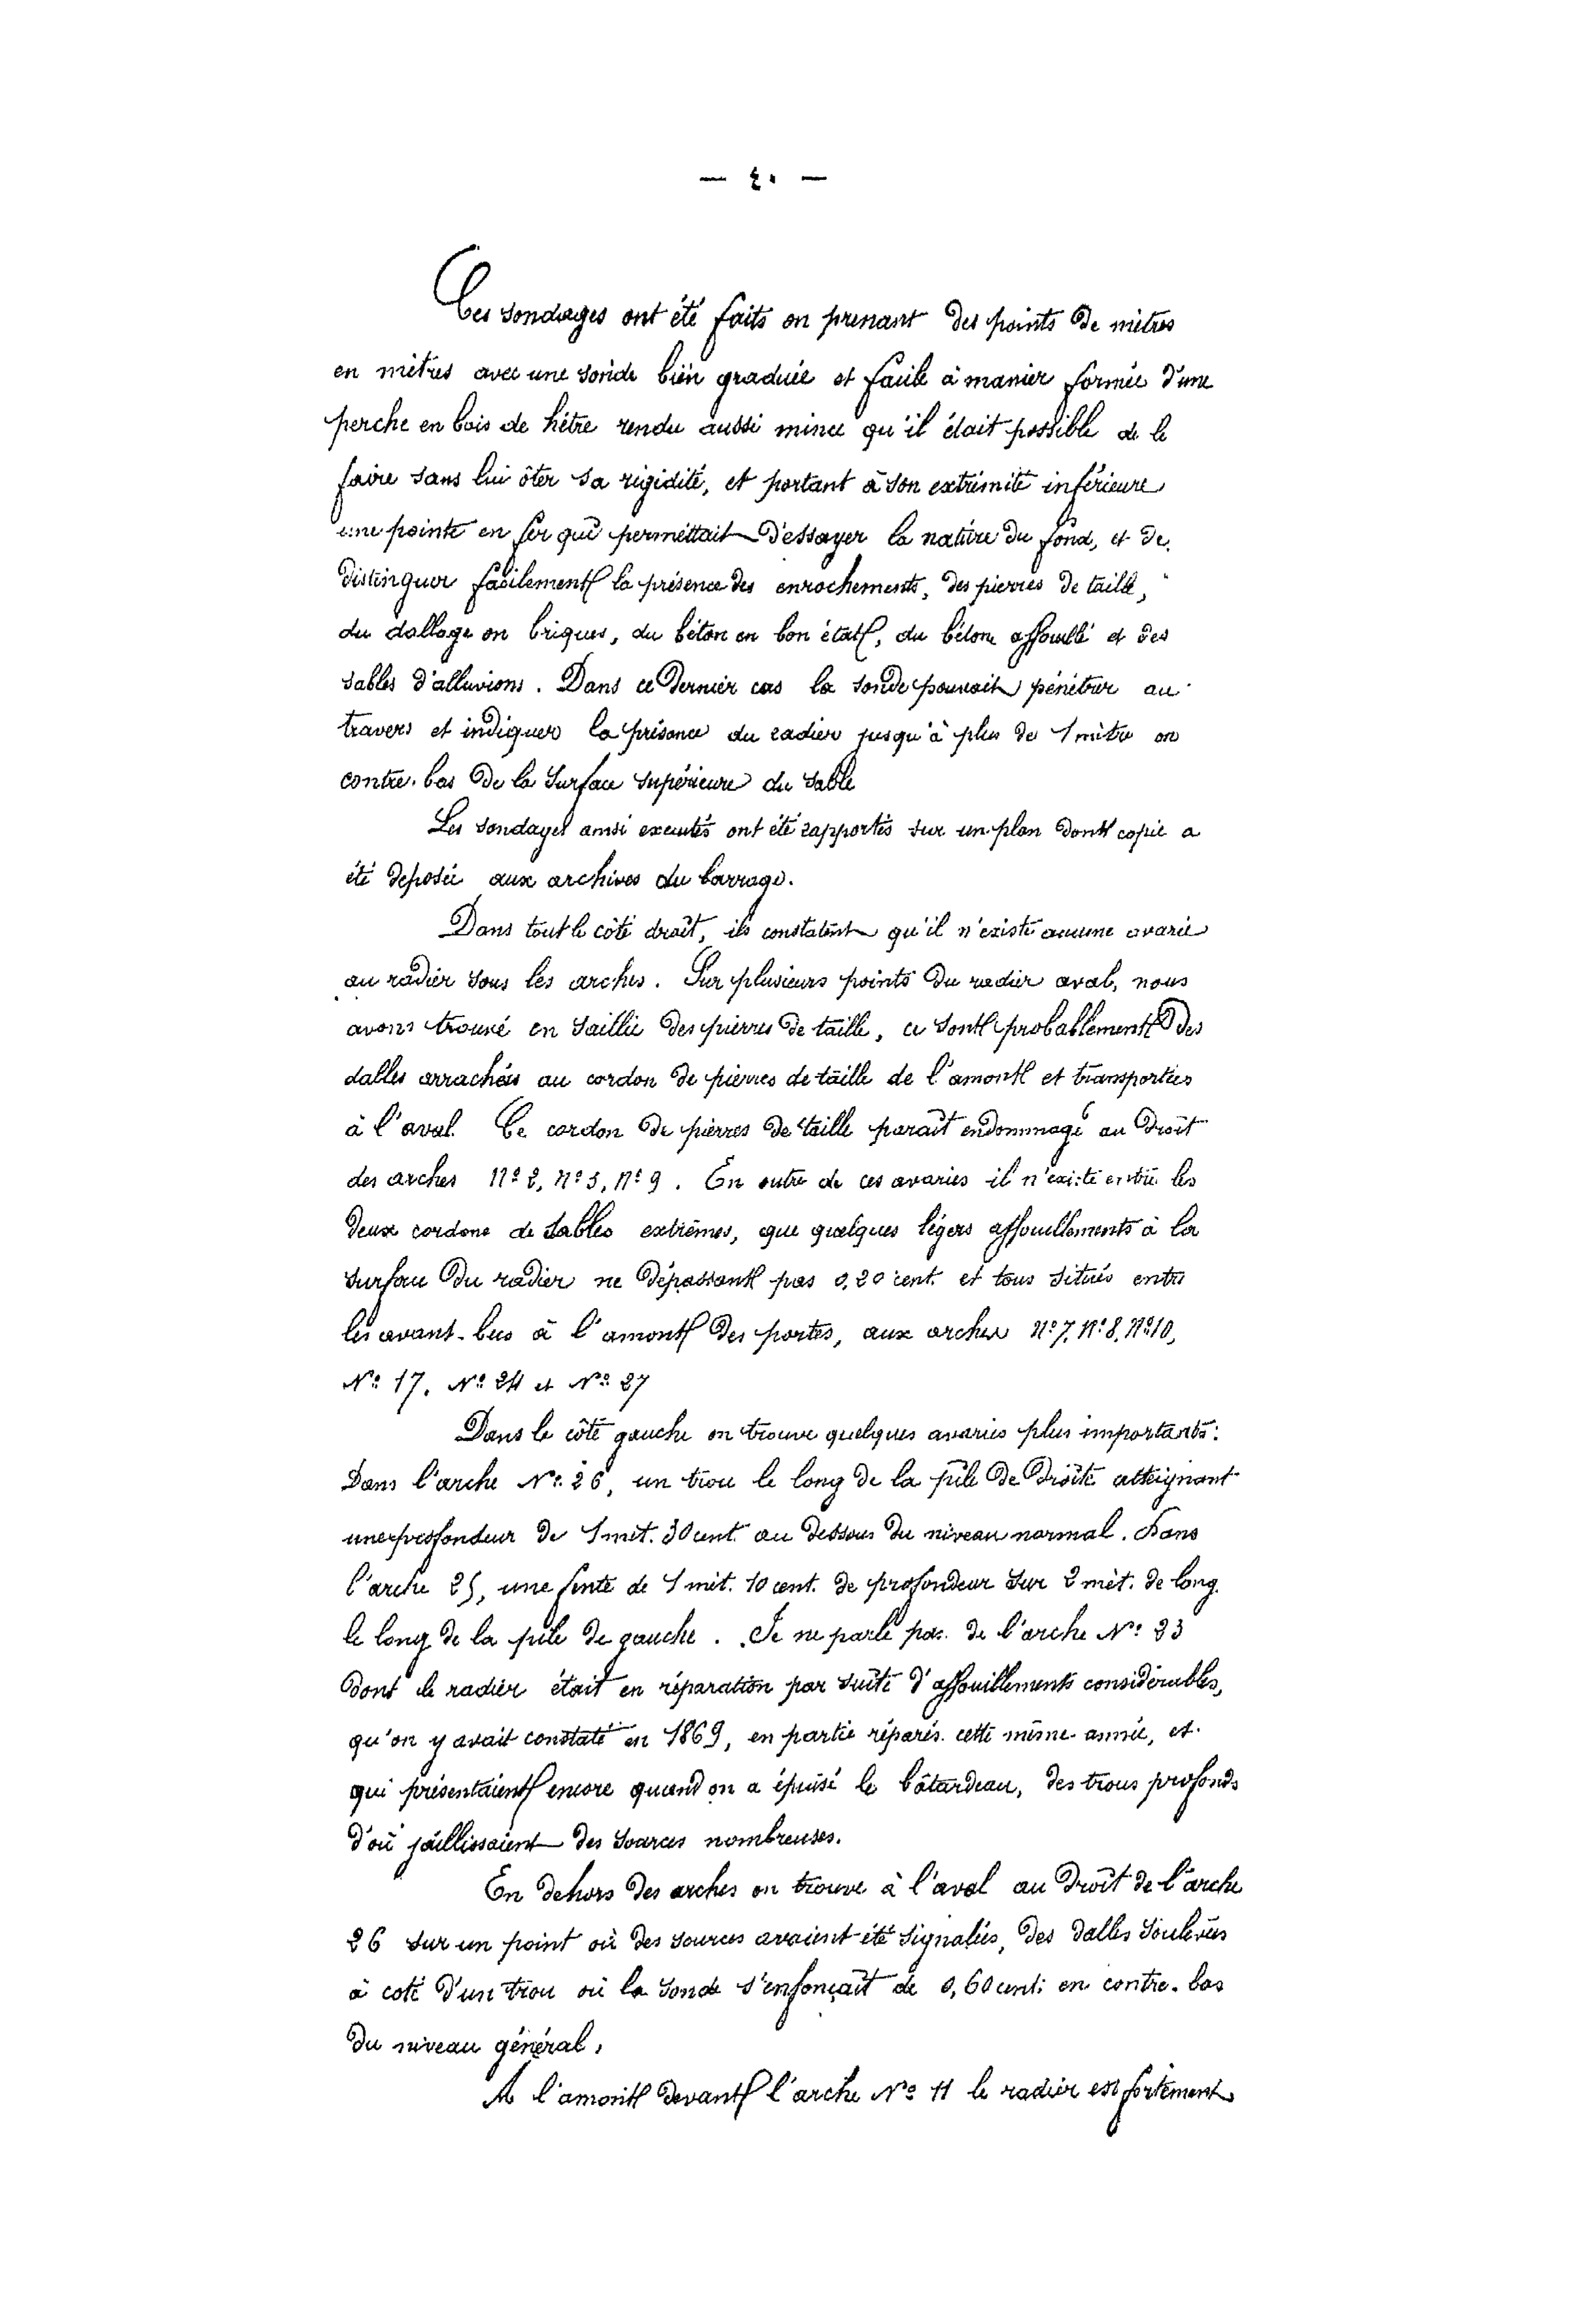 — ٤٠ —
Ces sondages ont été faits en prenant des points de mètres
en mètres avec une sonde bien graduée et facile à manier formée d'une
perche en bois de hêtre rendu aussi mince qu'il était possible de le
faire sans lui ôter sa rigidité, et portant à son extrémité inférieure
une pointe en fer qui permettait d'essayer la nature du fond, et de
distinguer facilement la présence des enrochements, des pierres de taille,
du dallage en briques, du béton en bon état, du béton affouillé et des
sables d'alluvions. Dans ce dernier cas la sonde pouvait pénétrer au
travers et indiquer la présence du radier jusqu'à plus de 1 mètre en
contre-bas de la surface supérieure du sable
Les sondages ainsi executés ont été rapportés sur un plan dont copie a
été déposée aux archives du barrage.
Dans tout le côté droit, ils constatent qu'il n'existe aucune avarie
au radier sous les arches. Sur plusieurs points du radier aval, nous
avons trouvé en saillie des pierres de taille, ce sont probablement des
dalles arrachées au cordon de pierres de taille de l'amont et transportées
à l'aval. Ce cordon de pierres de taille parait endommagé au droit
des arches N° 2, N° 3, N° 9. En outre de ces avaries il n'existe entre les
deux cordons de sables extrêmes, que quelques légers affouillements à la
surface du radier ne dépassant pas 0,20 cent. et tous situés entre
les avant-becs à l'amont des portes, aux arches N° 7, N° 8, N° 10,
N° 17, N° 24 et N° 27
Dans le côté gauche on trouve quelques avaries plus importants:
Dans l'arche N° 26, un trou le long de la pile de droite atteignant
une profondeur de 1 mèt. 30 cent. au dessous du niveau normal. Dans
l'arche 25, une fente de 1 mèt. 10 cent. de profondeur sur 2 mèt. de long.
le long de la pile de gauche. Je ne parle pas de l'arche N° 23
dont le radier était en réparation par suite d'affouillements considérables,
qu'on y avait constaté en 1869, en partie réparés cette même année, et
qui présentaient encore quand on a épuisé le bâtardeau, des trous profonds
d'où jaillissaient des sources nombreuses.
En dehors des arches on trouve à l'aval au droit de l'arche
26 sur un point où des sources avaient été signalées, des dalles soulevées
à coté d'un trou où la sonde s'enfonçait de 0,60 cent: en contre-bas
du niveau général,
A l'amont devant l'arche N° 11 le radier est fortement